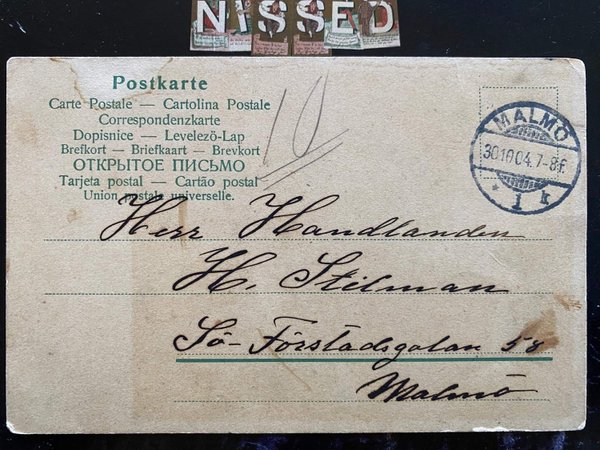 NISSED
Postkarte
Carte Postale — Cartolina Postale
Correspondenzkarte
Dopisnice — Levelezö-Lap
Brefkort — Briefkaart — Brevkort
ОТКРЫТОЕ ПИСЬМО
Tarjeta postal — Cartão postal
Union postale universelle.
10
MALMÖ
30.10.04.7-8f.
* 1 k
Herr Handlanden
H. Stilman
Sö-Förstadsgatan 58
Malmö